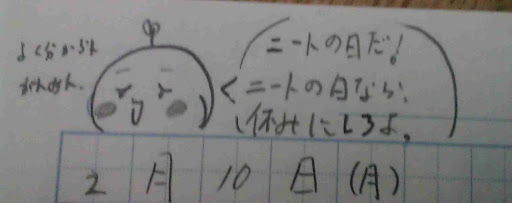 よく分からん
ニートの日だ!
ニートの日なら、
休みにしろよ。
2月10日(月)